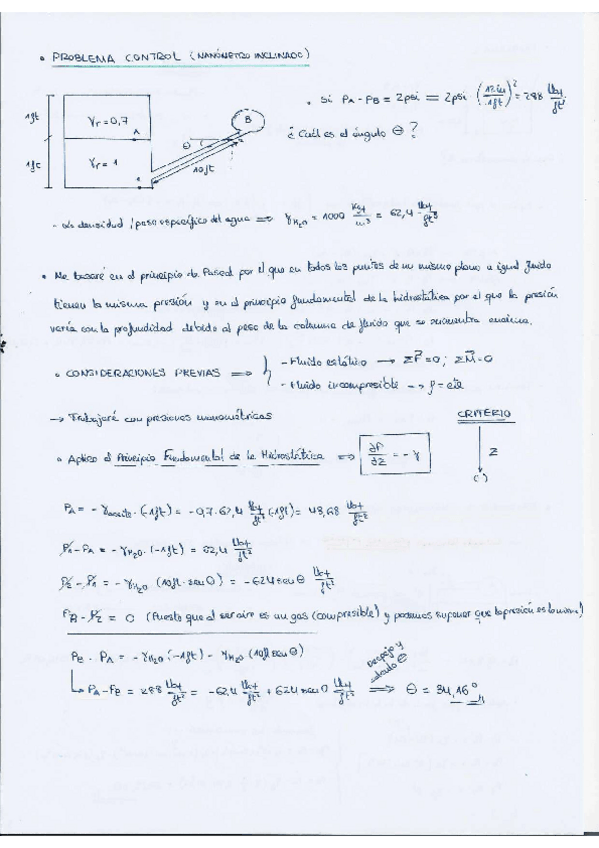 • PROBLEMA CONTROL (MANÓMETRO INCLINADO)
1ft
γr = 0,7
A
B
θ
1ft
γr = 1
1
10ft
• Si PA - PB = 2psi = 2psi (12in/1ft)² = 288 lbf/ft²
¿Cuál es el ángulo θ?
- densidad / peso específico del agua ⟹ γH₂O = 1000 kgf/m³ = 62,4 lbf/ft³
• Me basaré en el principio de Pascal por el que en todos los puntos de un mismo plano a igual fluido
tienen la misma presión y en el principio fundamental de la hidrostática por el que la presión
varía con la profundidad debido al peso de la columna de fluido que se encuentra encima.
• CONSIDERACIONES PREVIAS ⟹
- Fluido estático → ΣF = 0; ΣM = 0
- Fluido incompresible → ρ = cte
→ Trabajaré con presiones manométricas
CRITERIO
Z
(-)
• Aplico el Principio Fundamental de la Hidrostática ⟹ ∂P/∂z = -γ
PA = -γaceite · (-1ft) = -0,7 · 62,4 lbf/ft² (-1ft) = 43,68 lbf/ft²
P1 - PA = -γH₂O · (-1ft) = 62,4 lbf/ft²
P2 - P1 = -γH₂O (10ft · senθ) = -624 senθ lbf/ft²
PB - P2 = 0 (Puesto que al ser aire es un gas (compresible) y podemos suponer que la presión es la misma)
PB - PA = -γH₂O · (-1ft) - γH₂O (10ft senθ)
PA - PB = 288 lbf/ft² = -62,4 lbf/ft² + 624 senθ lbf/ft² ⟹ θ = 34,16°
Despejo y
θ